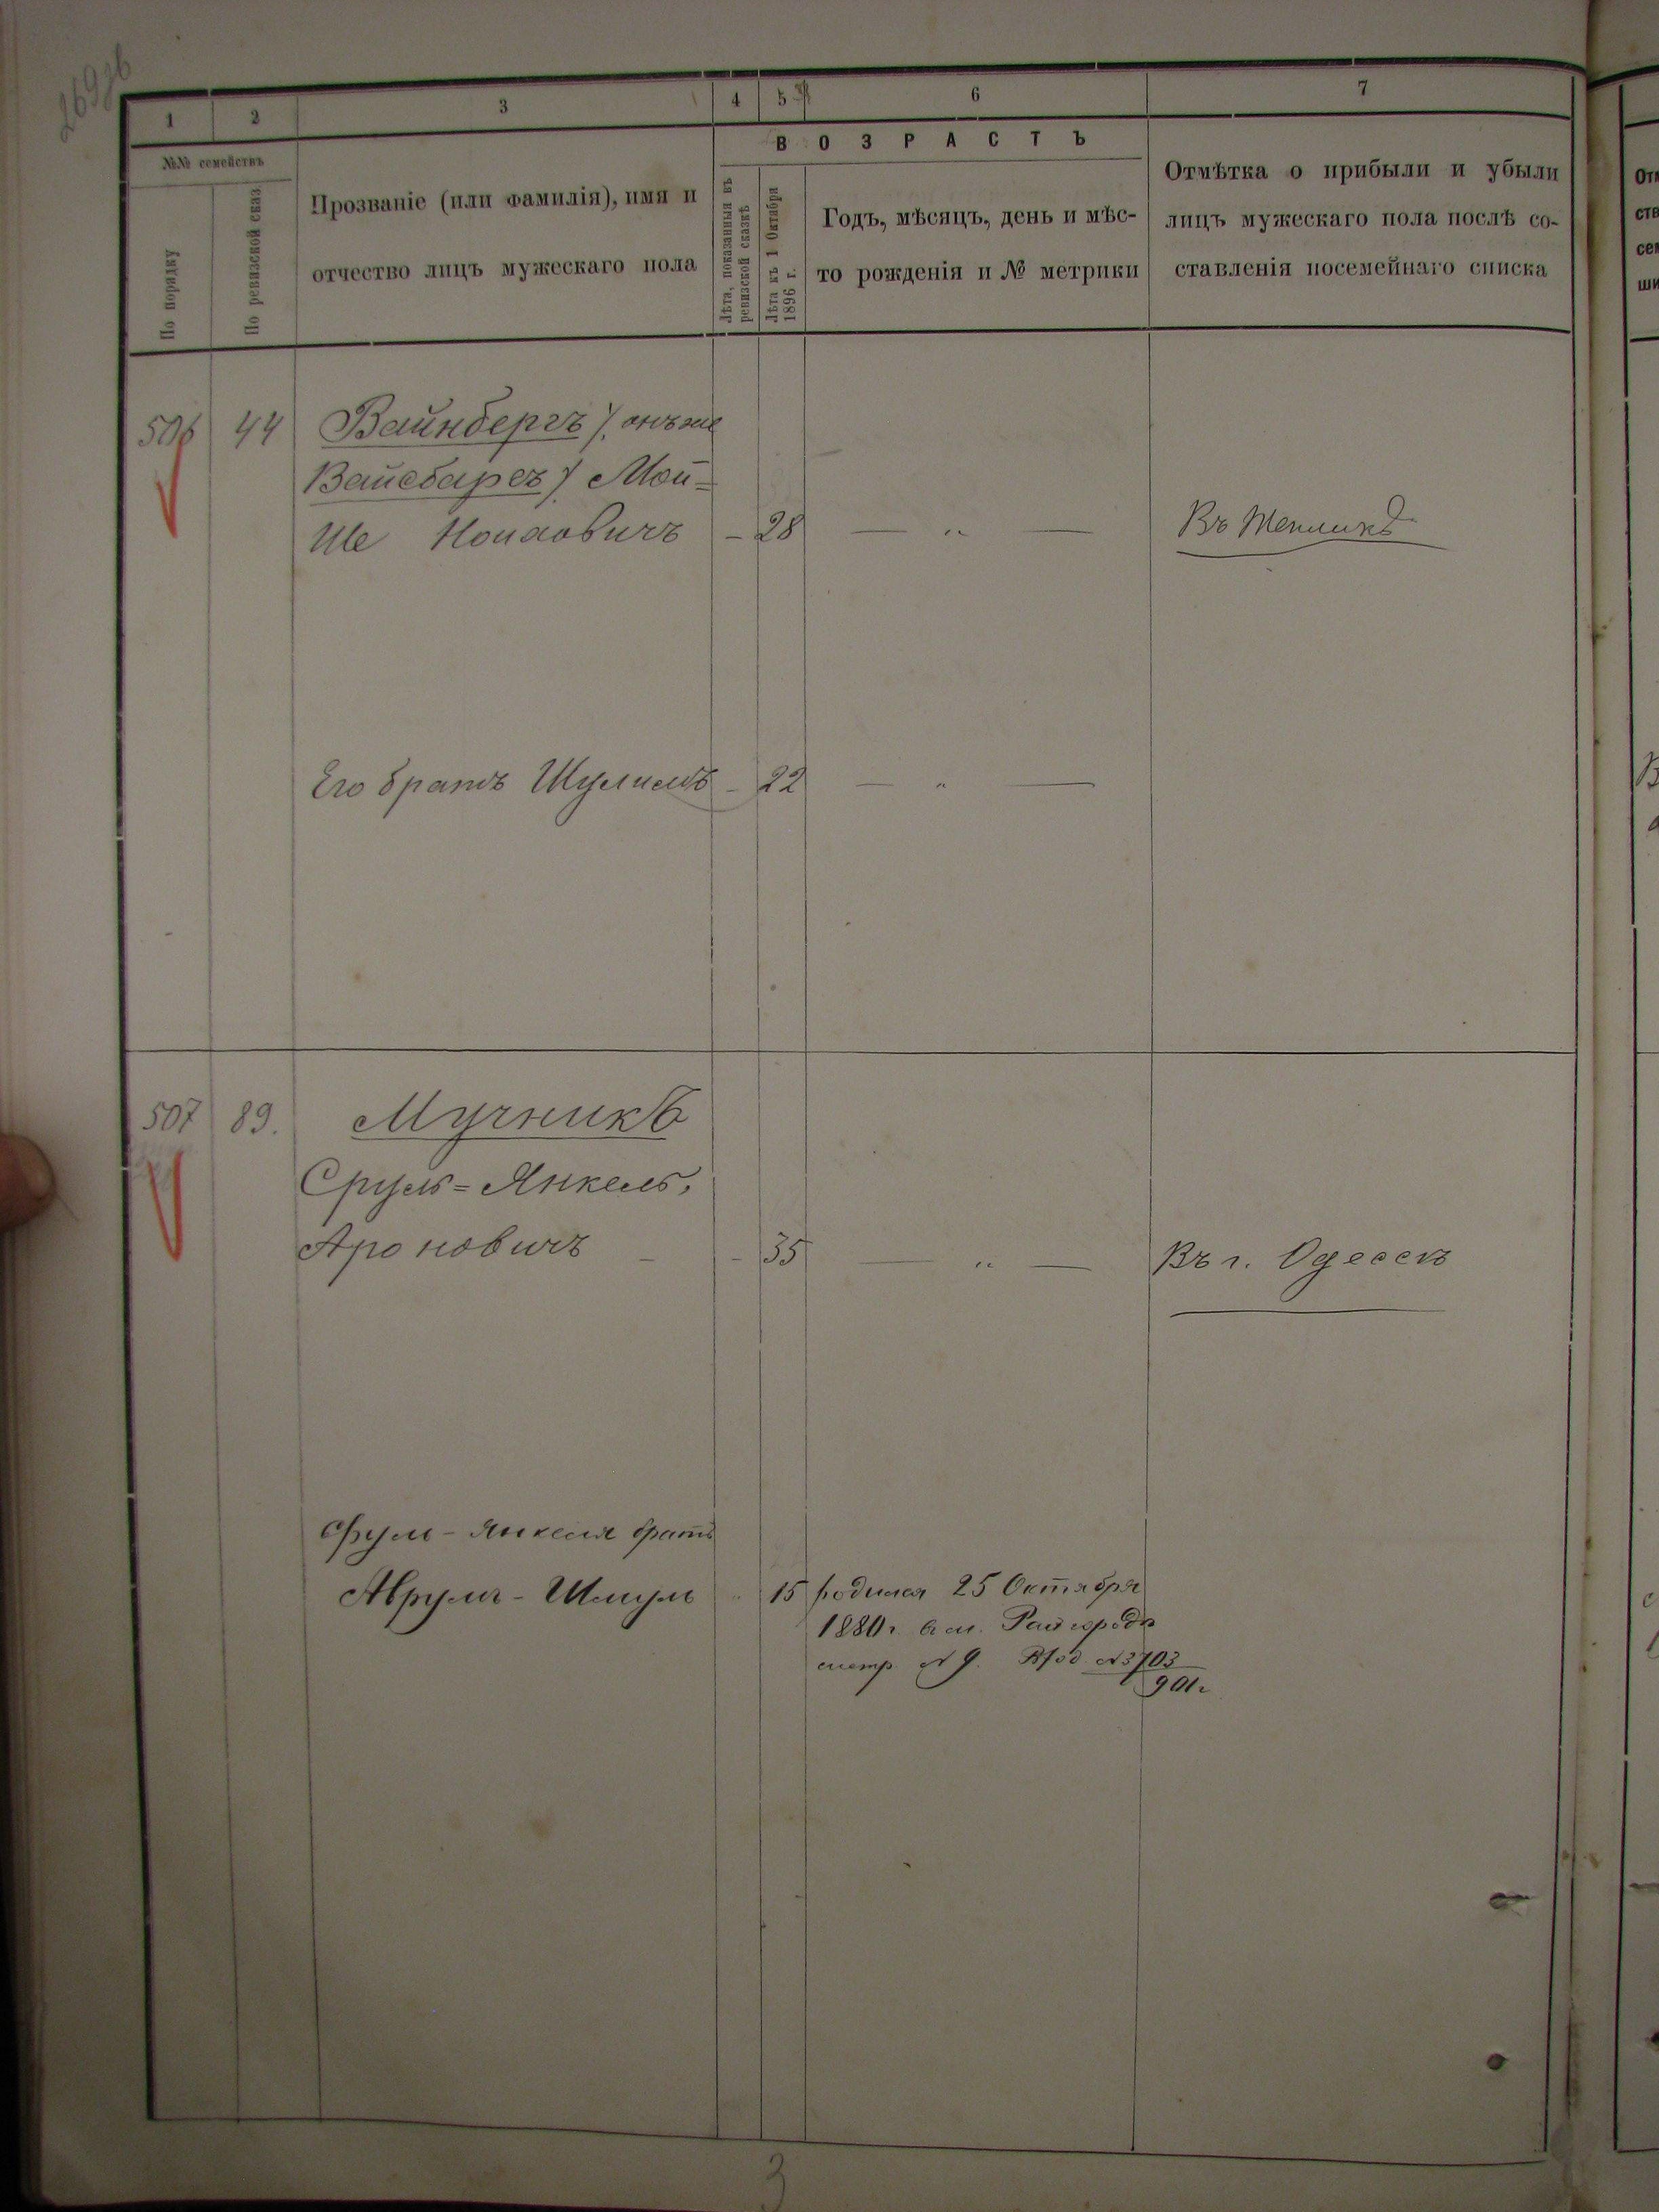 1 2 3 4 5 6 7
№№ семействъ
По порядку
По ревизской сказ.
Прозваніе (или фамилія), имя и
отчество лицъ мужескаго пола
ВОЗРАСТЪ
Лѣта, показанныя въ
ревизской сказкѣ
Лѣта къ 1 Октября
1896 г.
Годъ, мѣсяцъ, день и мѣс-
то рожденія и № метрики
Отмѣтка о прибыли и убыли
лицъ мужескаго пола послѣ со-
ставленія посемейнаго списка
506 44 Вайнбергъ /, онъ же
Вайсбаргъ/ Мой=
ше - 28 — „ — Въ Тепликѣ
Его братъ Шулимъ - 22 — „ —
507 89. Мучникъ
Сруль=Янкель,
Ароновичъ - - 35 — „ — Въ г. Одессѣ
Сруль-Янкеля братъ
Аврумъ-Шмуль „ 15 родился 25 Октября
1880 г. в м. Райгородѣ
метр. № 9. № 3703
901 г
3